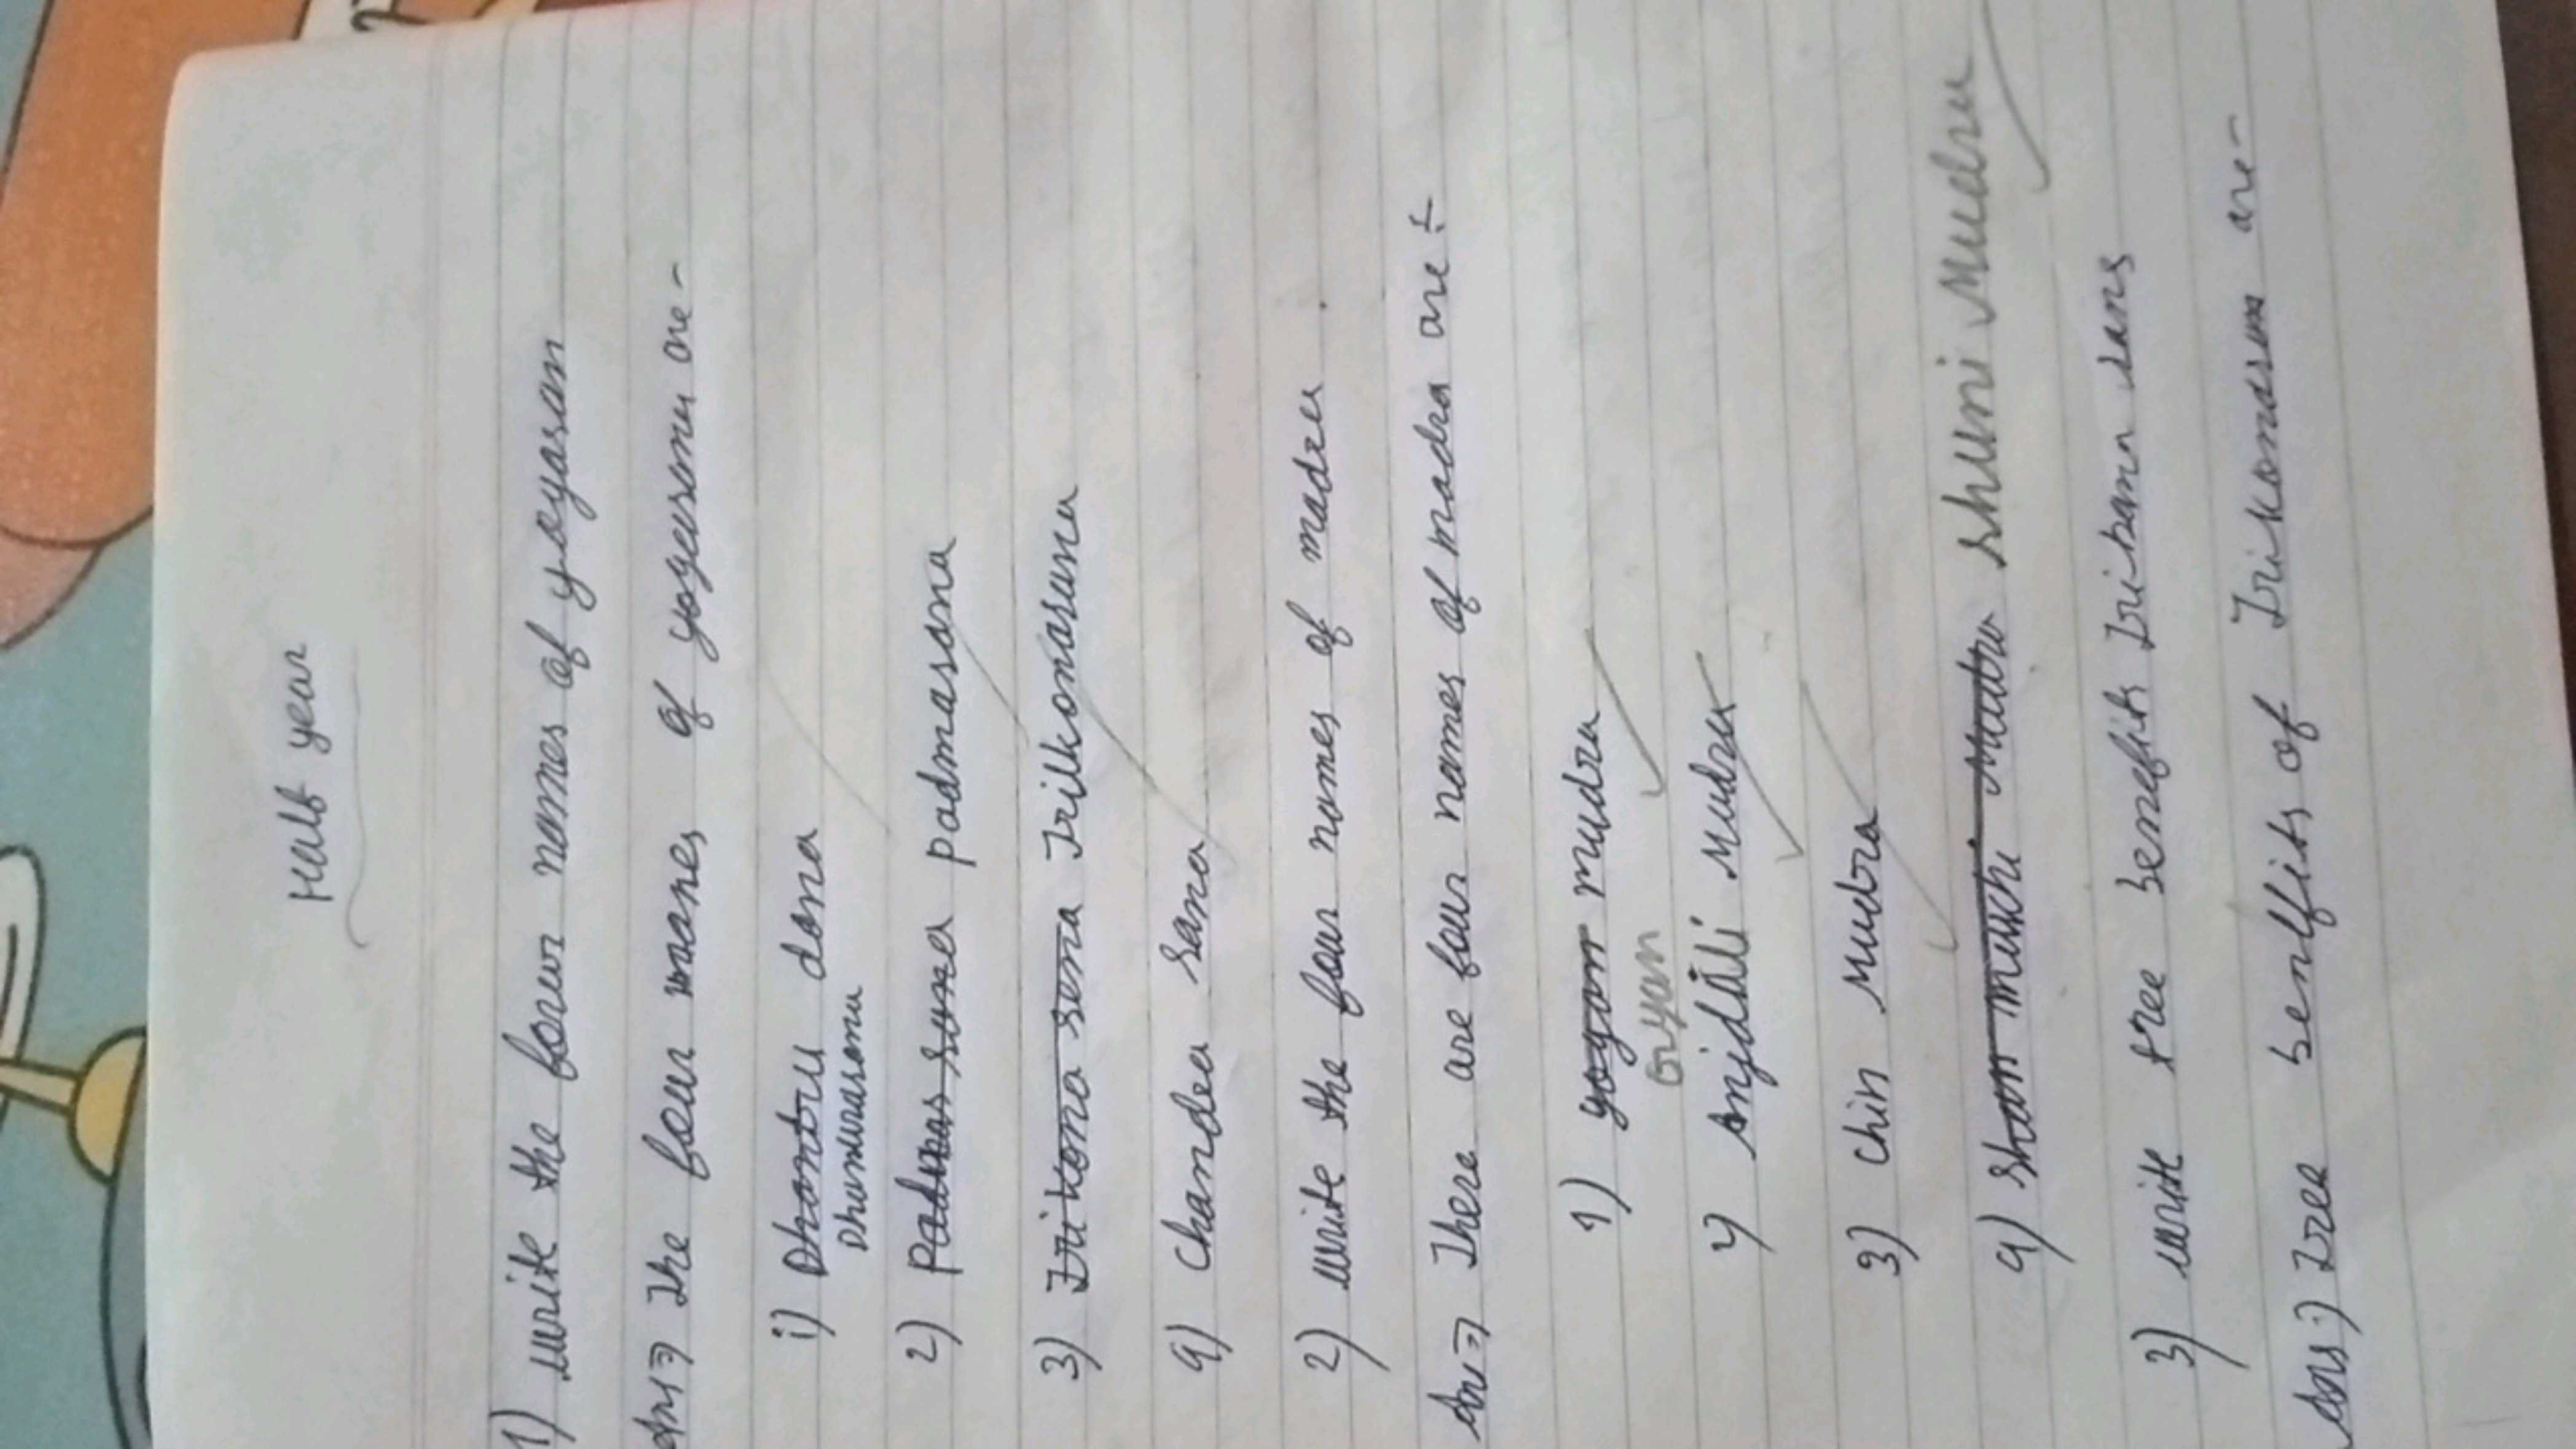 Half year
1) write the four names of yoyasan
Ans⇒ The four manes of yogasana are-
i) Dhontru dana
Dhanurasana
2) Padmas sana padmasana
3) Trikona sena Trilkonasana
4) Chandea sana
2) write the four names of madra.
Ans⇒ There are four names of madra are ÷
1) yogan mudra
Gyan
2) Anjdali Mudra
3) Chin Mudra
4) Shan mukhi Mudra Shuni Mudra
3) write tree benefits Trikana sans
Ans⇒) Tree benlfits of Trikonasan are-